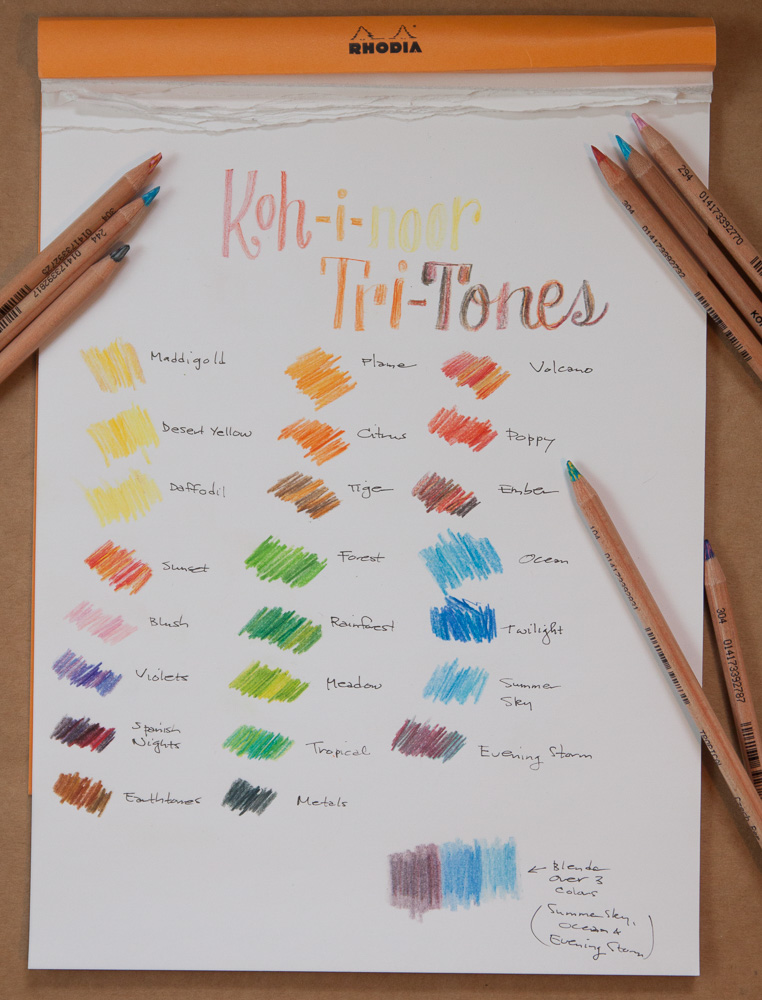 RHODIA
Koh-i-noor
Tri-Tones
Maddigold
Flame
Volcano
Desert Yellow
Citrus
Poppy
Daffodil
Tige
Ember
Sunset
Forest
Ocean
Blush
Rainforest
Twilight
Violets
Meadow
Summer
Sky
Spanish
Nights
Tropical
Evening Storm
Earthtones
Metals
← Blender
over 3
colors
(Summer Sky,
Ocean &
Evening Storm)
304
244
014173392817
294
014173392770
304
304
014173392787